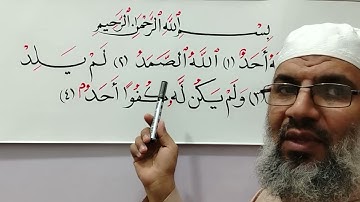 بِسْمِ اللَّهِ الرَّحْمَٰنِ الرَّحِيمِ
أَحَدٌ (١) اللَّهُ الصَّمَدُ (٢) لَمْ يَلِدْ
وَلَمْ يَكُنْ لَهُ كُفُوًا أَحَدٌ (٤)